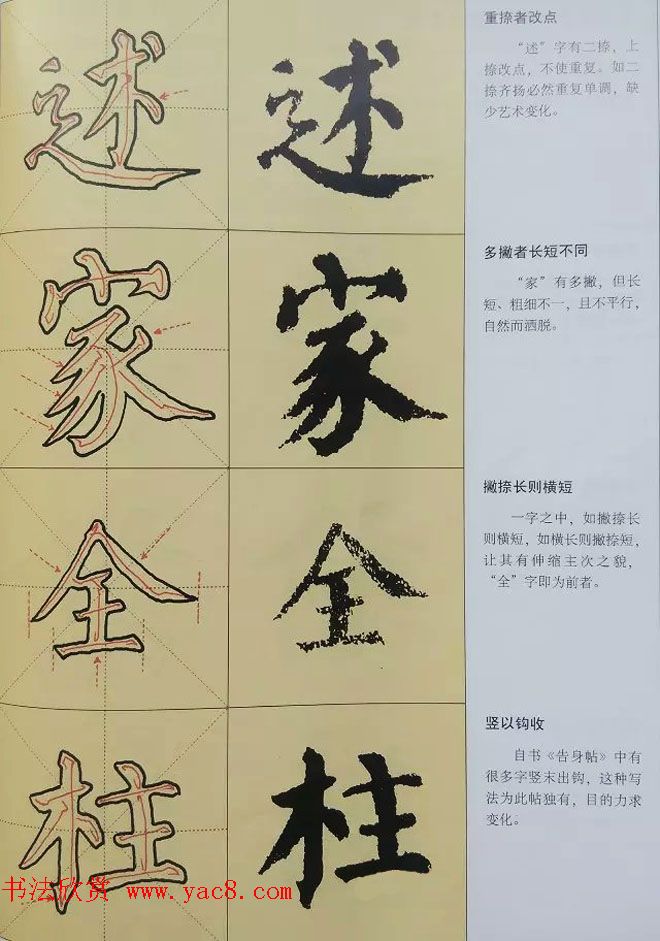 述 述
重捺者改点
“述”字有二捺，上
捺改点，不使重复。如二
捺齐扬必然重复单调，缺
少艺术变化。
家 家
多撇者长短不同
“家”有多撇，但长
短、粗细不一，且不平行，
自然而洒脱。
全 全
撇捺长则横短
一字之中，如撇捺长
则横短，如横长则撇捺短，
让其有伸缩主次之貌，
“全”字即为前者。
柱 柱
竖以钩收
自书《告身帖》中有
很多字竖末出钩，这种写
法为此帖独有，目的力求
变化。
书法欣赏 www.yac8.com